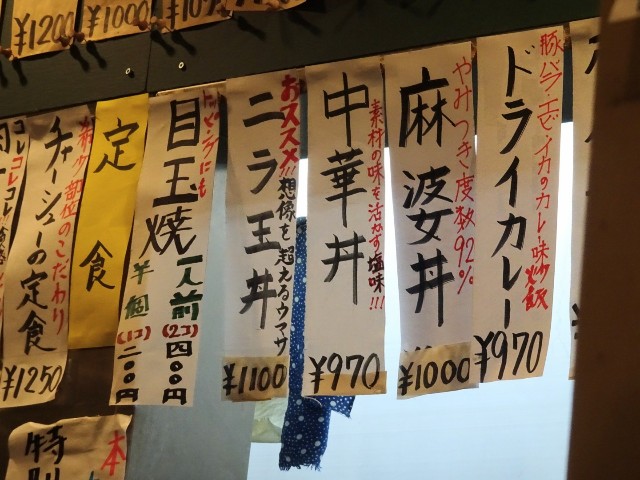 ¥1200
¥1000
豚バラ、エビ、イカのカレー味炒飯
ドライカレー
¥970
やみつき度数92%
麻婆丼
¥1000
素材の味を活かす塩味!!!
中華丼
¥970
おススメ!!想像を超えるウマサ
ニラ玉丼
¥1100
トッピングにも
目玉焼
一人前(2コ)四〇〇円
半個(1コ)二〇〇円
定食
部位のこだわり
チャーシューの定食
¥1250
コレコレコレ
特別